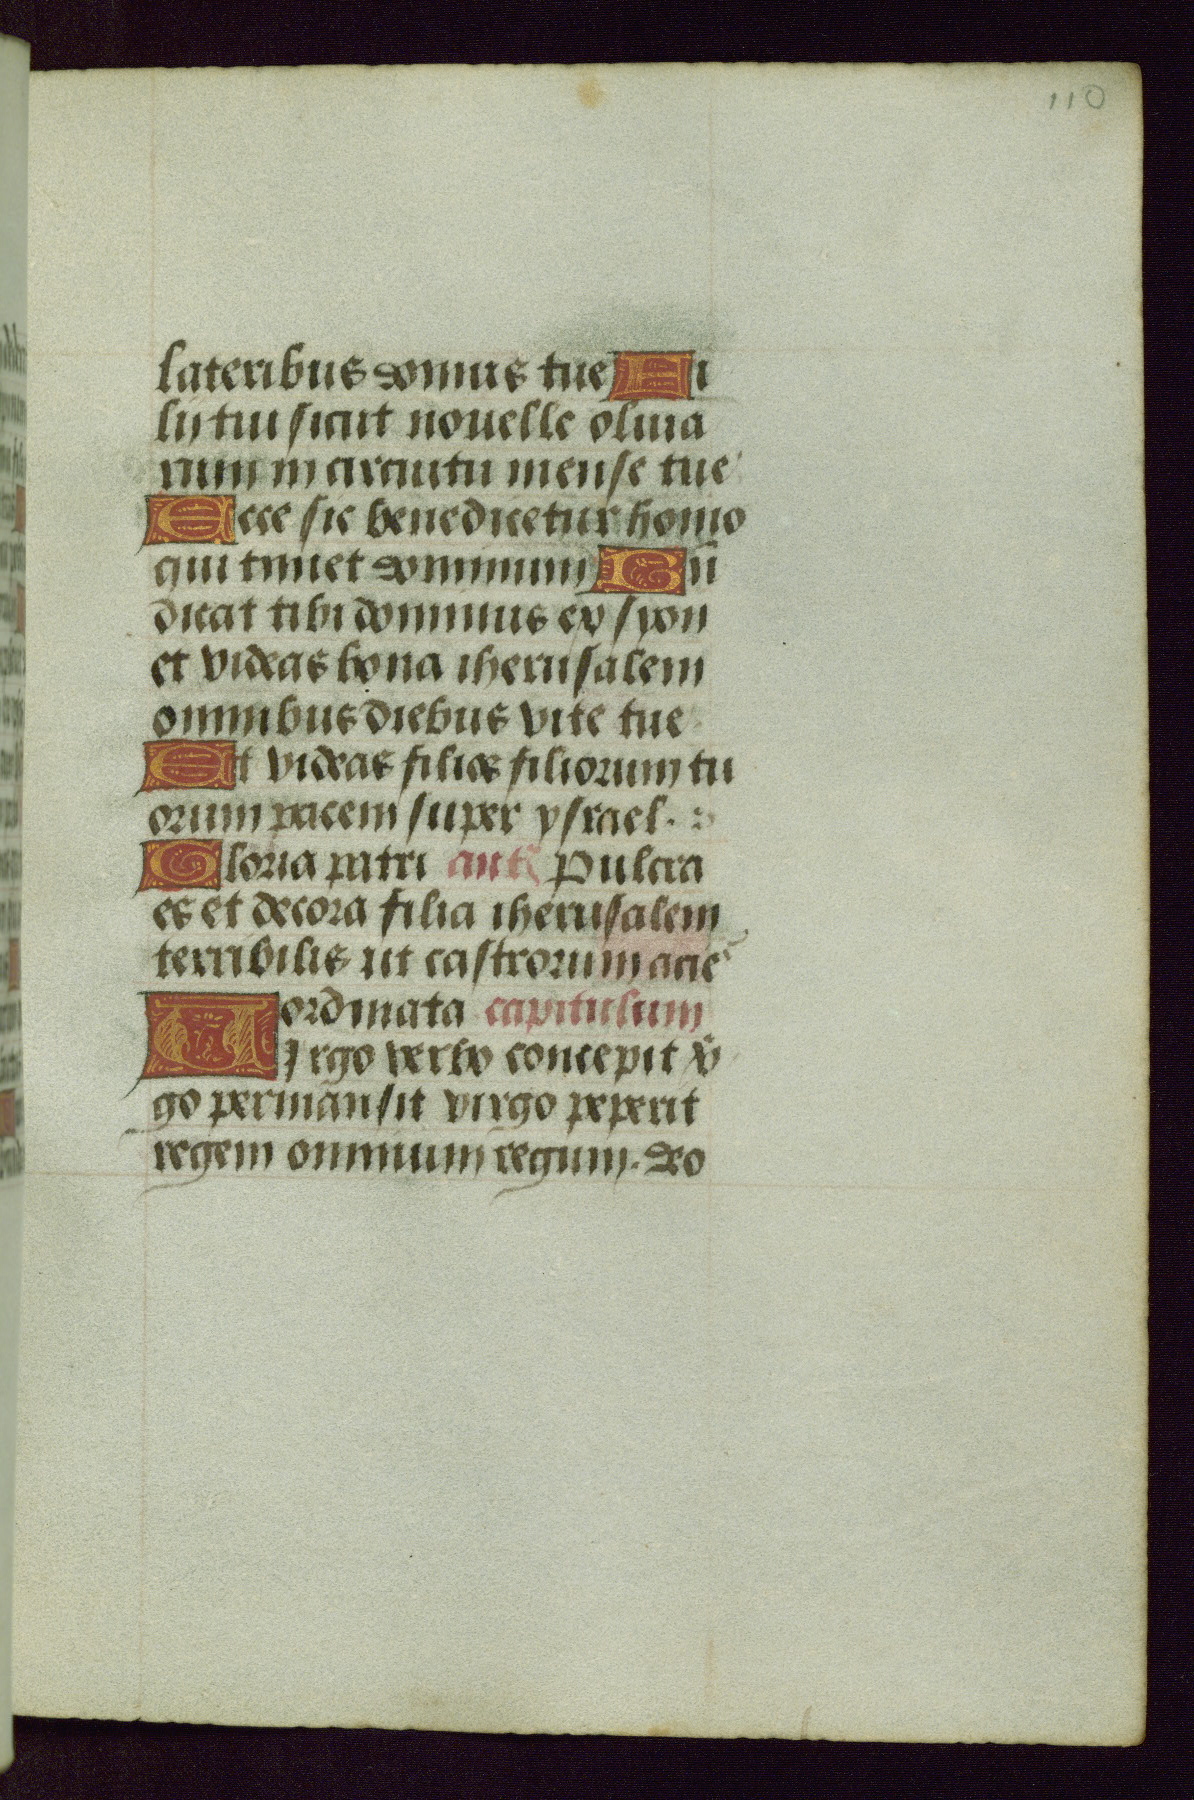 110
lateribus domus tue Fi
lij tui sicut nouelle oliua
rum in circuitu mense tue
Ecce sic benedicetur homo
qui timet dominum Bn̄
dicat tibi dominus ex syon
et videas bona iherusalem
omnibus diebus vite tue
Et videas filios filiorum tu
orum pacem super ysrael.
Gloria patri ant̄ Pulcra
es et decora filia iherusalem
terribilis ut castrorum acies
ordinata capitulum
Virgo verbo concepit v̄
go permansit virgo peperit
regem omnium regum. deo